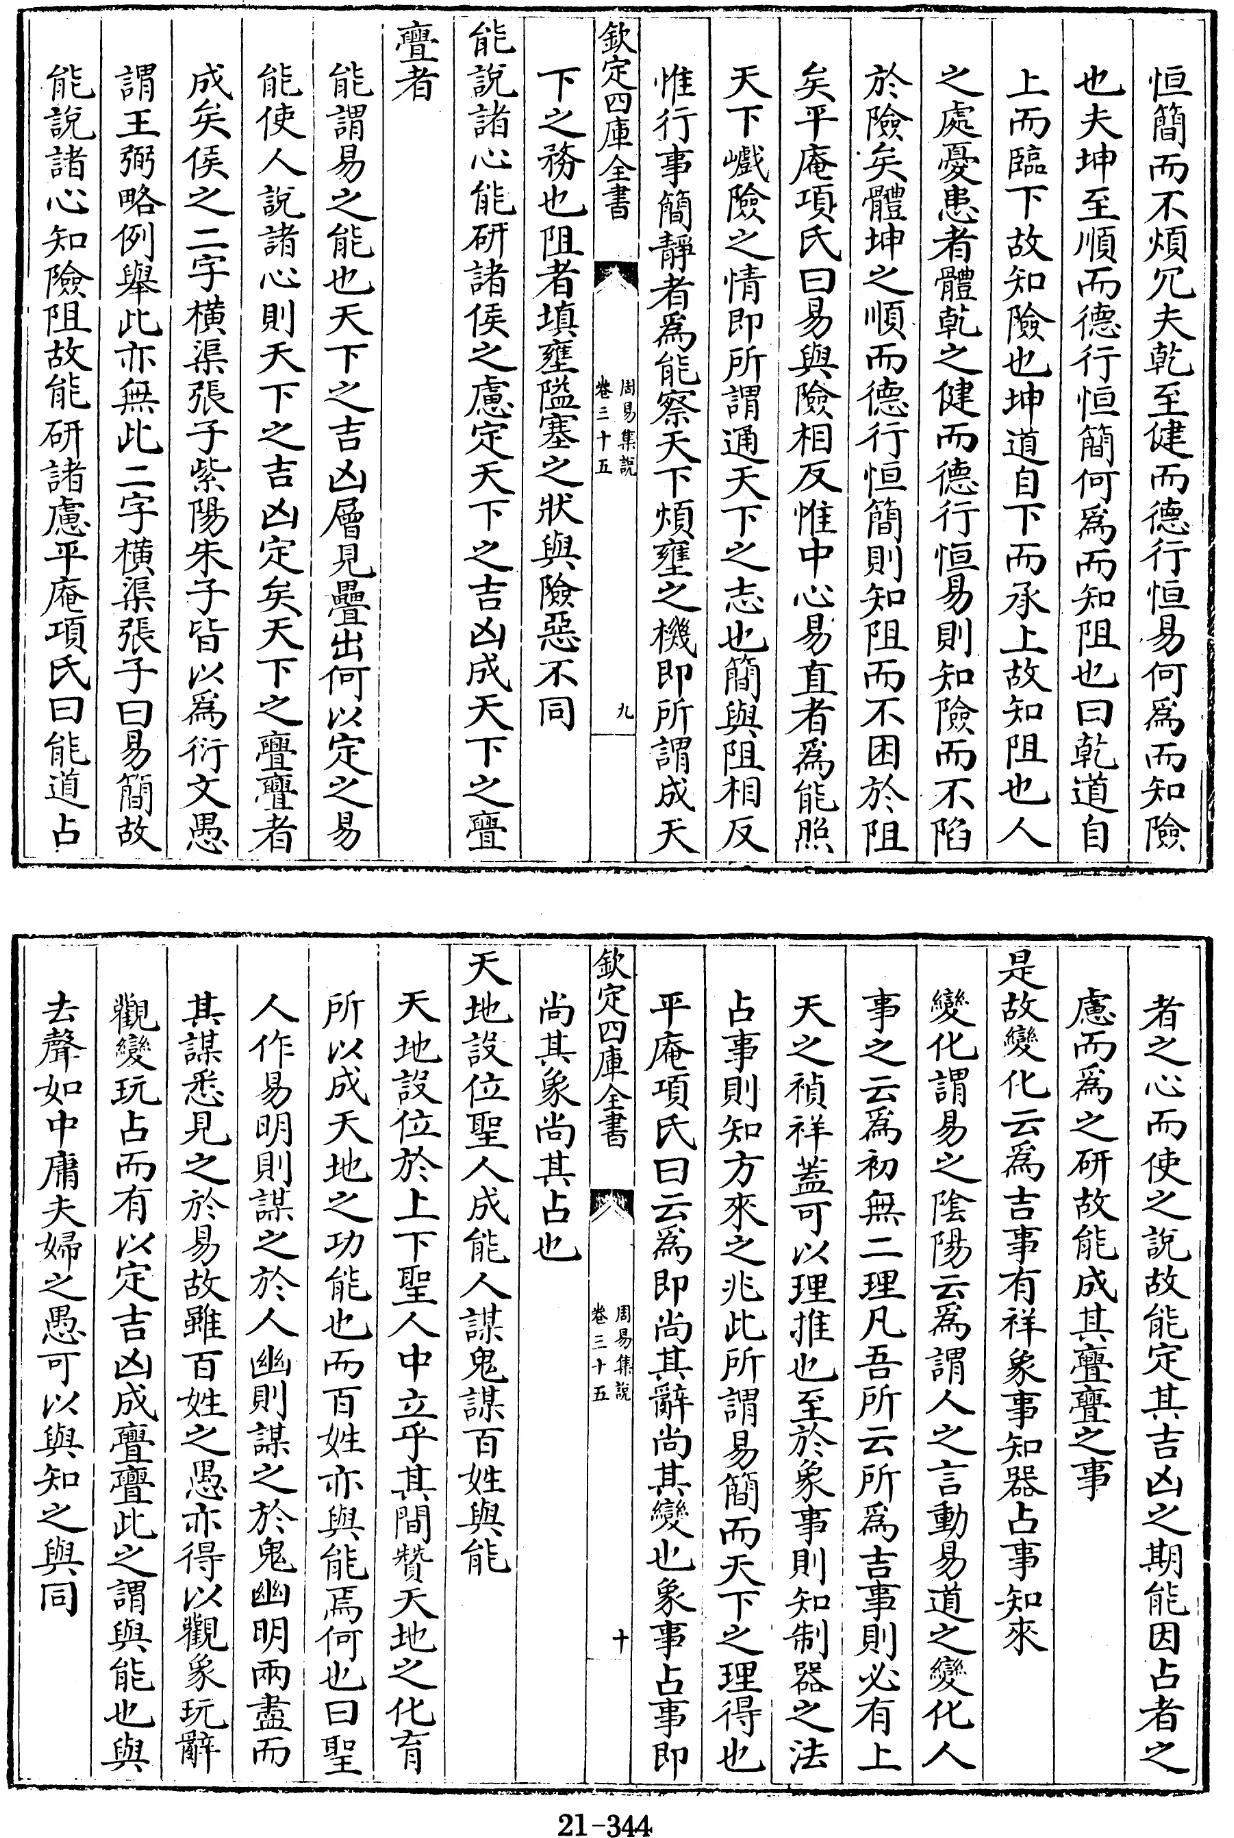 恒簡而不煩冗夫乾至健而德行恒易何爲而知險
也夫坤至順而德行恒簡何爲而知阻也曰乾道自
上而臨下故知險也坤道自下而承上故知阻也人
之處憂患者體乾之健而德行恒易則知險而不陷
於險矣體坤之順而德行恒簡則知阻而不困於阻
矣平庵項氏曰易與險相反惟中心易直者爲能照
天下巇險之情即所謂通天下之志也簡與阻相反
惟行事簡靜者爲能察天下煩壅之機即所謂成天
欽定四庫全書
周易集說
卷三十五
九
下之務也阻者填壅隘塞之狀與險惡不同
能說諸心能研諸侯之慮定天下之吉凶成天下之亹
亹者
能謂易之能也天下之吉凶層見疊出何以定之易
能使人說諸心則天下之吉凶定矣天下之亹亹者
成矣侯之二字橫渠張子紫陽朱子皆以爲衍文愚
謂王弼略例舉此亦無此二字橫渠張子曰易簡故
能說諸心知險阻故能研諸慮平庵項氏曰能道占
者之心而使之說故能定其吉凶之期能因占者之
慮而爲之研故能成其亹亹之事
是故變化云爲吉事有祥象事知器占事知來
變化謂易之陰陽云爲謂人之言動易道之變化人
事之云爲初無二理凡吾所云所爲吉事則必有上
天之禎祥蓋可以理推也至於象事則知制器之法
占事則知方來之兆此所謂易簡而天下之理得也
平庵項氏曰云爲即尚其辭尚其變也象事占事即
欽定四庫全書
周易集說
卷三十五
十
尚其象尚其占也
天地設位聖人成能人謀鬼謀百姓與能
天地設位於上下聖人中立乎其間贊天地之化育
所以成天地之功能也而百姓亦與能焉何也曰聖
人作易明則謀之於人幽則謀之於鬼幽明兩盡而
其謀悉見之於易故雖百姓之愚亦得以觀象玩辭
觀變玩占而有以定吉凶成亹亹此之謂與能也與
去聲如中庸夫婦之愚可以與知之與同
21-344